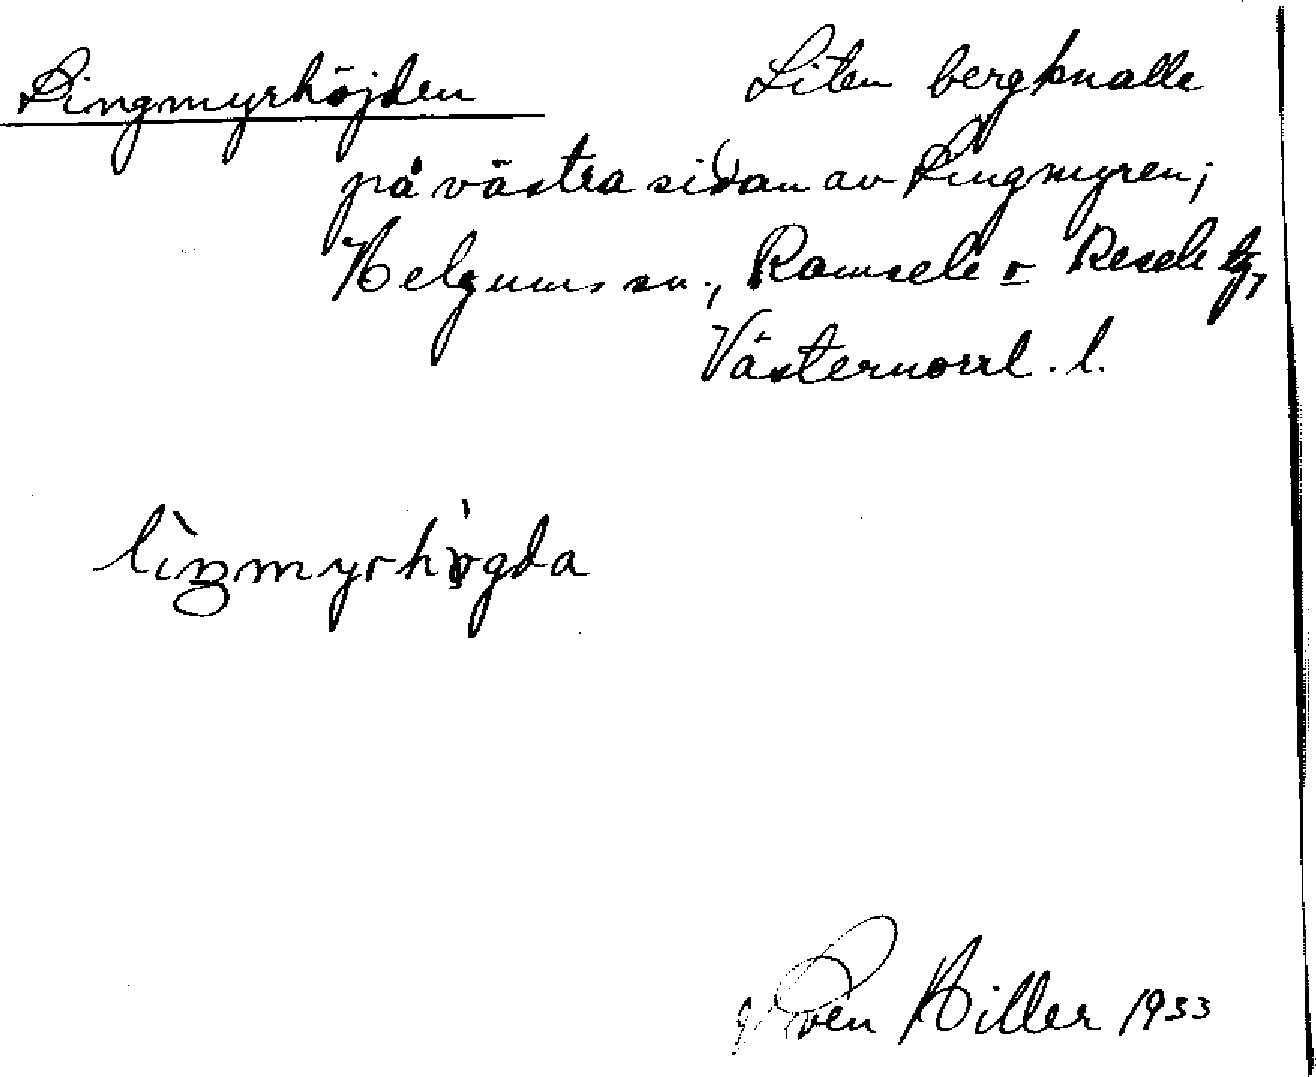 Lingmyrhöjden Liten bergknalle
på västra sidan av Lingmyren;
Helgums sn., Ramsele o Resele tg,
Västernorrl. l.
lìŋmyrhògda
Sven Hiller 1933